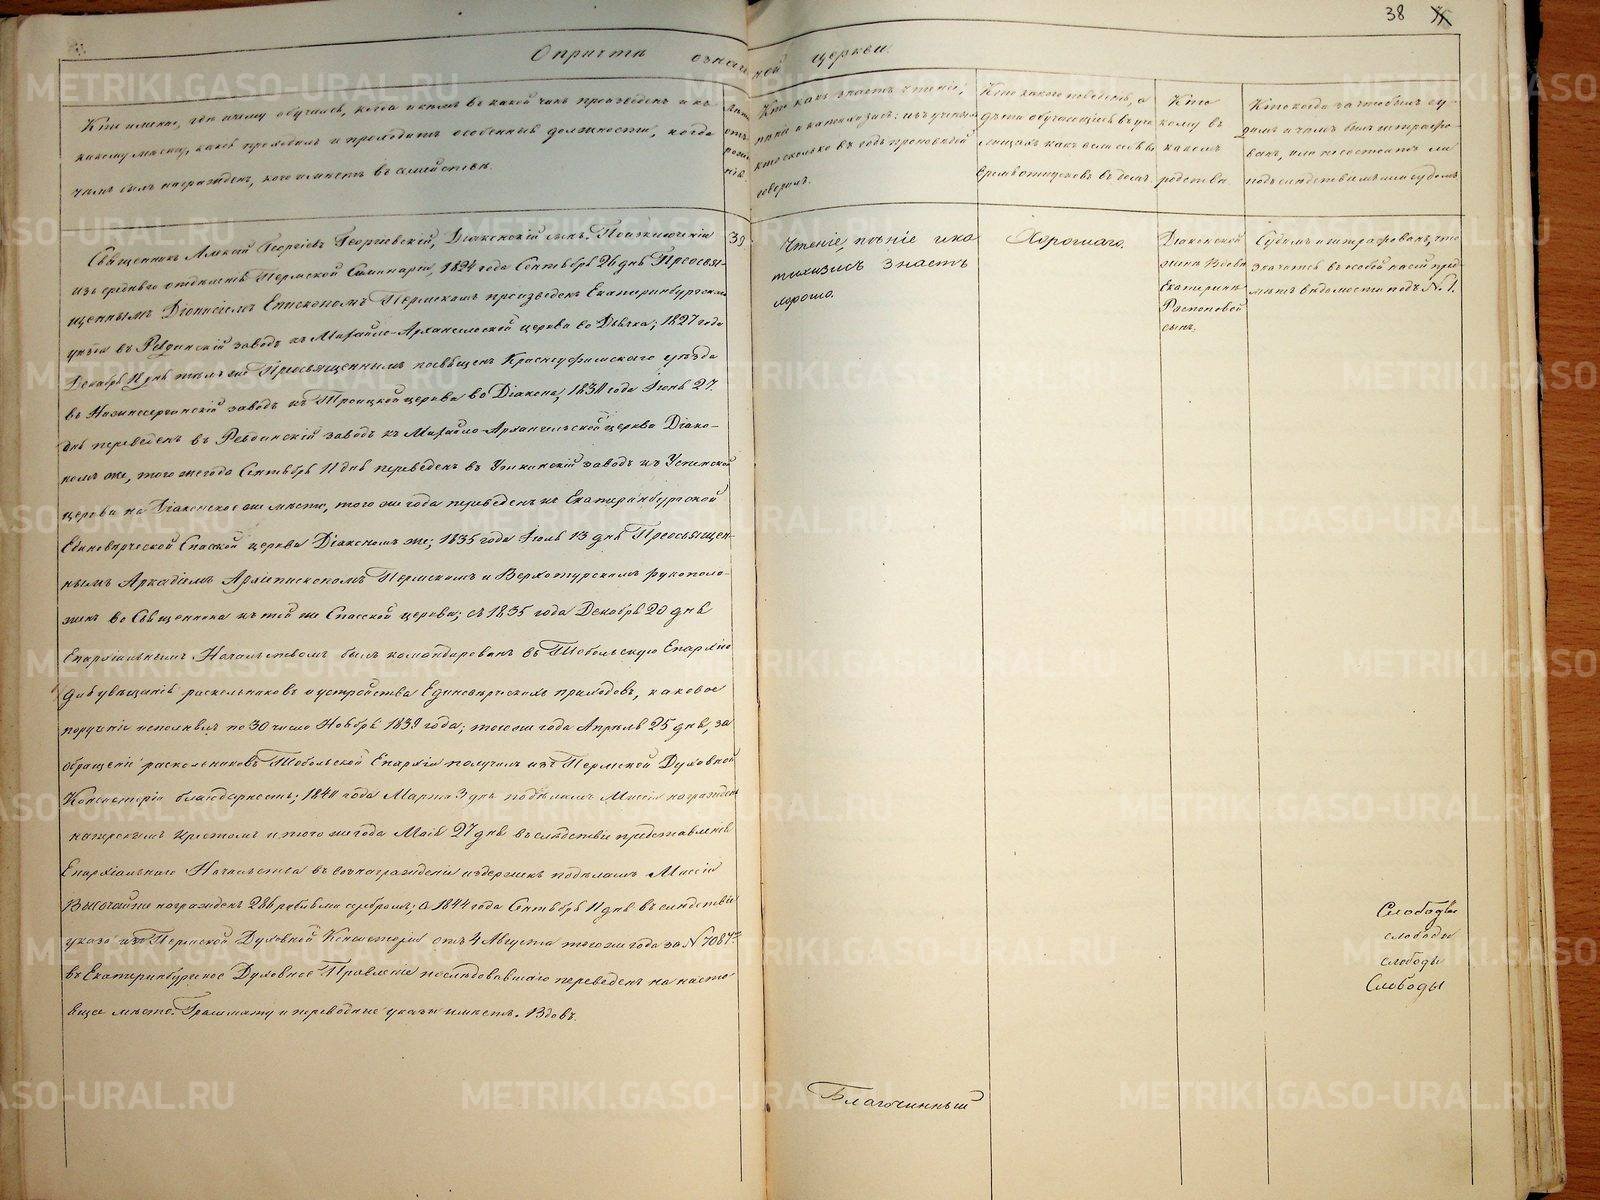 38
О причтѣ означенной церкви.
Кто именно, гдѣ и чему обучался, когда и кѣмъ въ какой чинъ произведенъ и къ
какому мѣсту, какія проходилъ и проходитъ особенныя должности, когда
чѣмъ былъ награжденъ, кого имѣетъ въ семействѣ.
Лѣта
отъ
рожде
нія.
Кто какъ знаетъ чтеніе,
пѣніе и катихизисъ; изъ ученыхъ
кто сколько въ годъ проповѣдей
говорилъ.
Кто какого поведенія, а
дѣти обучающіеся въ учи
лищахъ какъ
время отпусковъ въ домъ.
Кто
кому въ
какомъ
родствѣ.
Кто когда за что былъ су-
димъ и чѣмъ былъ штрафо-
ванъ, или не состоитъ ли
подъ слѣдствіемъ или судомъ
Священникъ Алексій Георгіевъ Георгіевскій, Діаконскій сынъ. По исключеніи
изъ средняго отдѣленія Пермской Семинаріи, 1824 года Сентября 26 дня Преосвя-
щеннымъ Діонисіемъ Епископомъ Пермскимъ произведенъ Екатеринбургскаго
уѣзда въ Ревдинскій заводъ къ Михайло-Архангельской церкви во Дьячка; 1827 года
Декабря 11 дня тѣмъ же Преосвященнымъ посвященъ Красноуфимскаго уѣзда
въ Нижнесергинскій заводъ къ Троицкой церкви во Діакона, 183 года Іюня 27
дня переведенъ въ Ревдинскій заводъ къ Михайло-Архангельской церкви Діако-
номъ же, того же года Сентября 11 дня переведенъ въ Уткинскій заводъ къ Успенской
церкви на Діаконское же мѣсто, того же года переведенъ къ Екатеринбургской
Единовѣрческой Спасской церкви Діакономъ же; 1835 года Іюля 13 дня Преосвящен-
нымъ Аркадіемъ Архіепископомъ Пермскимъ и Верхотурскимъ рукополо-
женъ во Священника къ той же Спасской церкви; съ 1835 года Декабря 20 дня
Епархіальнымъ Начальствомъ былъ командированъ въ Тобольскую Епархію
для увѣщанія раскольниковъ и устройства Единовѣрческихъ приходовъ, каковое
порученіе исполнялъ по 30 число Ноября 1839 года; того же года Апрѣля 25 дня, за
обращеніе раскольниковъ Тобольской Епархіи получилъ изъ Пермской Духовной
Консисторіи благодарность; 1840 года Марта 3 дня по дѣламъ Миссіи награжденъ
наперснымъ крестомъ и того же года Маія 27 дня въ слѣдствіе представленія
Епархіальнаго Начальства въ вознагражденіе издержекъ по дѣламъ Миссіи
Высочайше награжденъ 286 рублями серебромъ; а 1844 года Сентября 11 дня въ слѣдствіе
указа изъ Пермской Духовной Консисторіи отъ 4 Августа того же года за № 7087
въ Екатеринбургское Духовное Правленіе послѣдовавшаго переведенъ на насто-
ящее мѣсто. Граммату и переводные указы имѣетъ. Вдовъ.
39.
Чтеніе, пѣніе и ка
тихизисъ знаетъ
хорошо.
Хорошаго.
Діаконской
жены Вдовы
Екатерины
Распоповой
сынъ.
Судимъ и штрафованъ, что
значится въ особой части при
мѣтъ вѣдомости подъ № 1.
Слободы
слободы
слободы
Слободы
Благочинный
METRIKI.GASO-URAL.RU